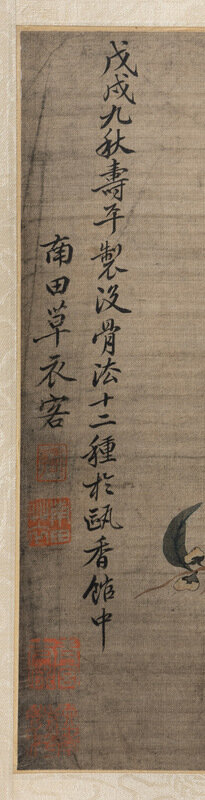 戊戌九秋壽平製没骨法十二種於甌香館中
南田草衣客